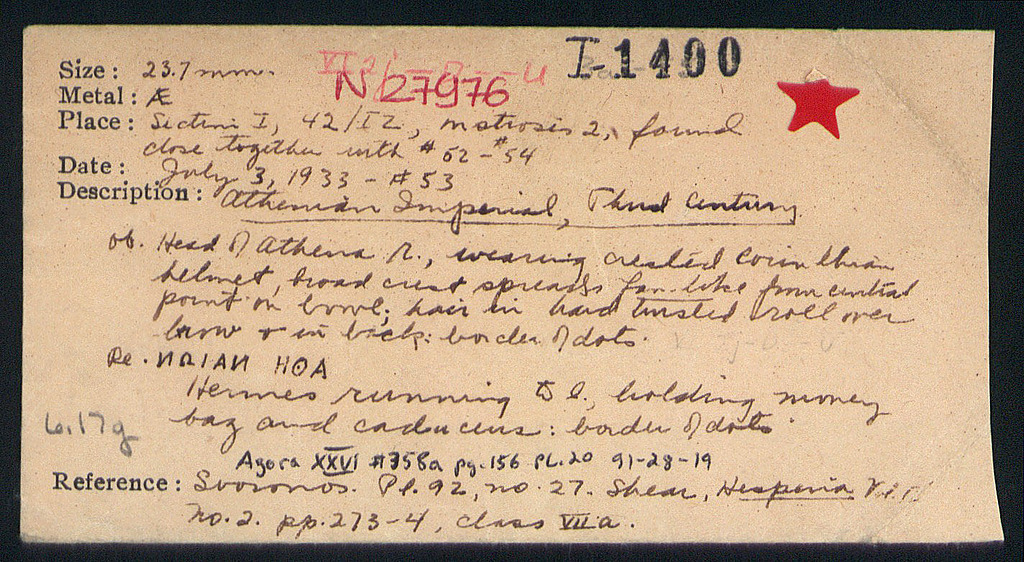 I-1400
N 27976
Size : 23.7 mm.
Metal : Æ
Place : Section I, 42/IZ, , found
close together with #52-#54
Date : July 3, 1933 - #53
Description : Athenian Imperial, Third Century
ob. Head of Athena r., wearing crested Corinthian
helmet, broad crest spreads fan-like from central
point on bowl; hair in hard twisted roll over
brow & in back: border of dots.
Re. ΝΑΙΑΝ ΗΘΑ
Hermes running to l., holding money
bag and caduceus: border of dots
6.17g
Agora XXVI #358a pg. 156 PL. 20 91-28-19
Reference : Svoronos. Pl. 92, no. 27. Shear, Hesperia
no. 2. pp. 273-4, class VII a.